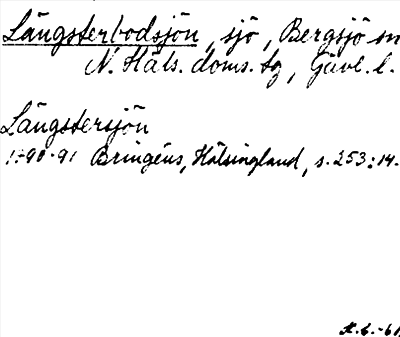 Längsterbodsjön, sjö, Bergsjö sn
N. Häls. doms. tg, Gävl. l.
Längstersjön
1790-91 Bringéus, Hälsingland, s. 253:14.